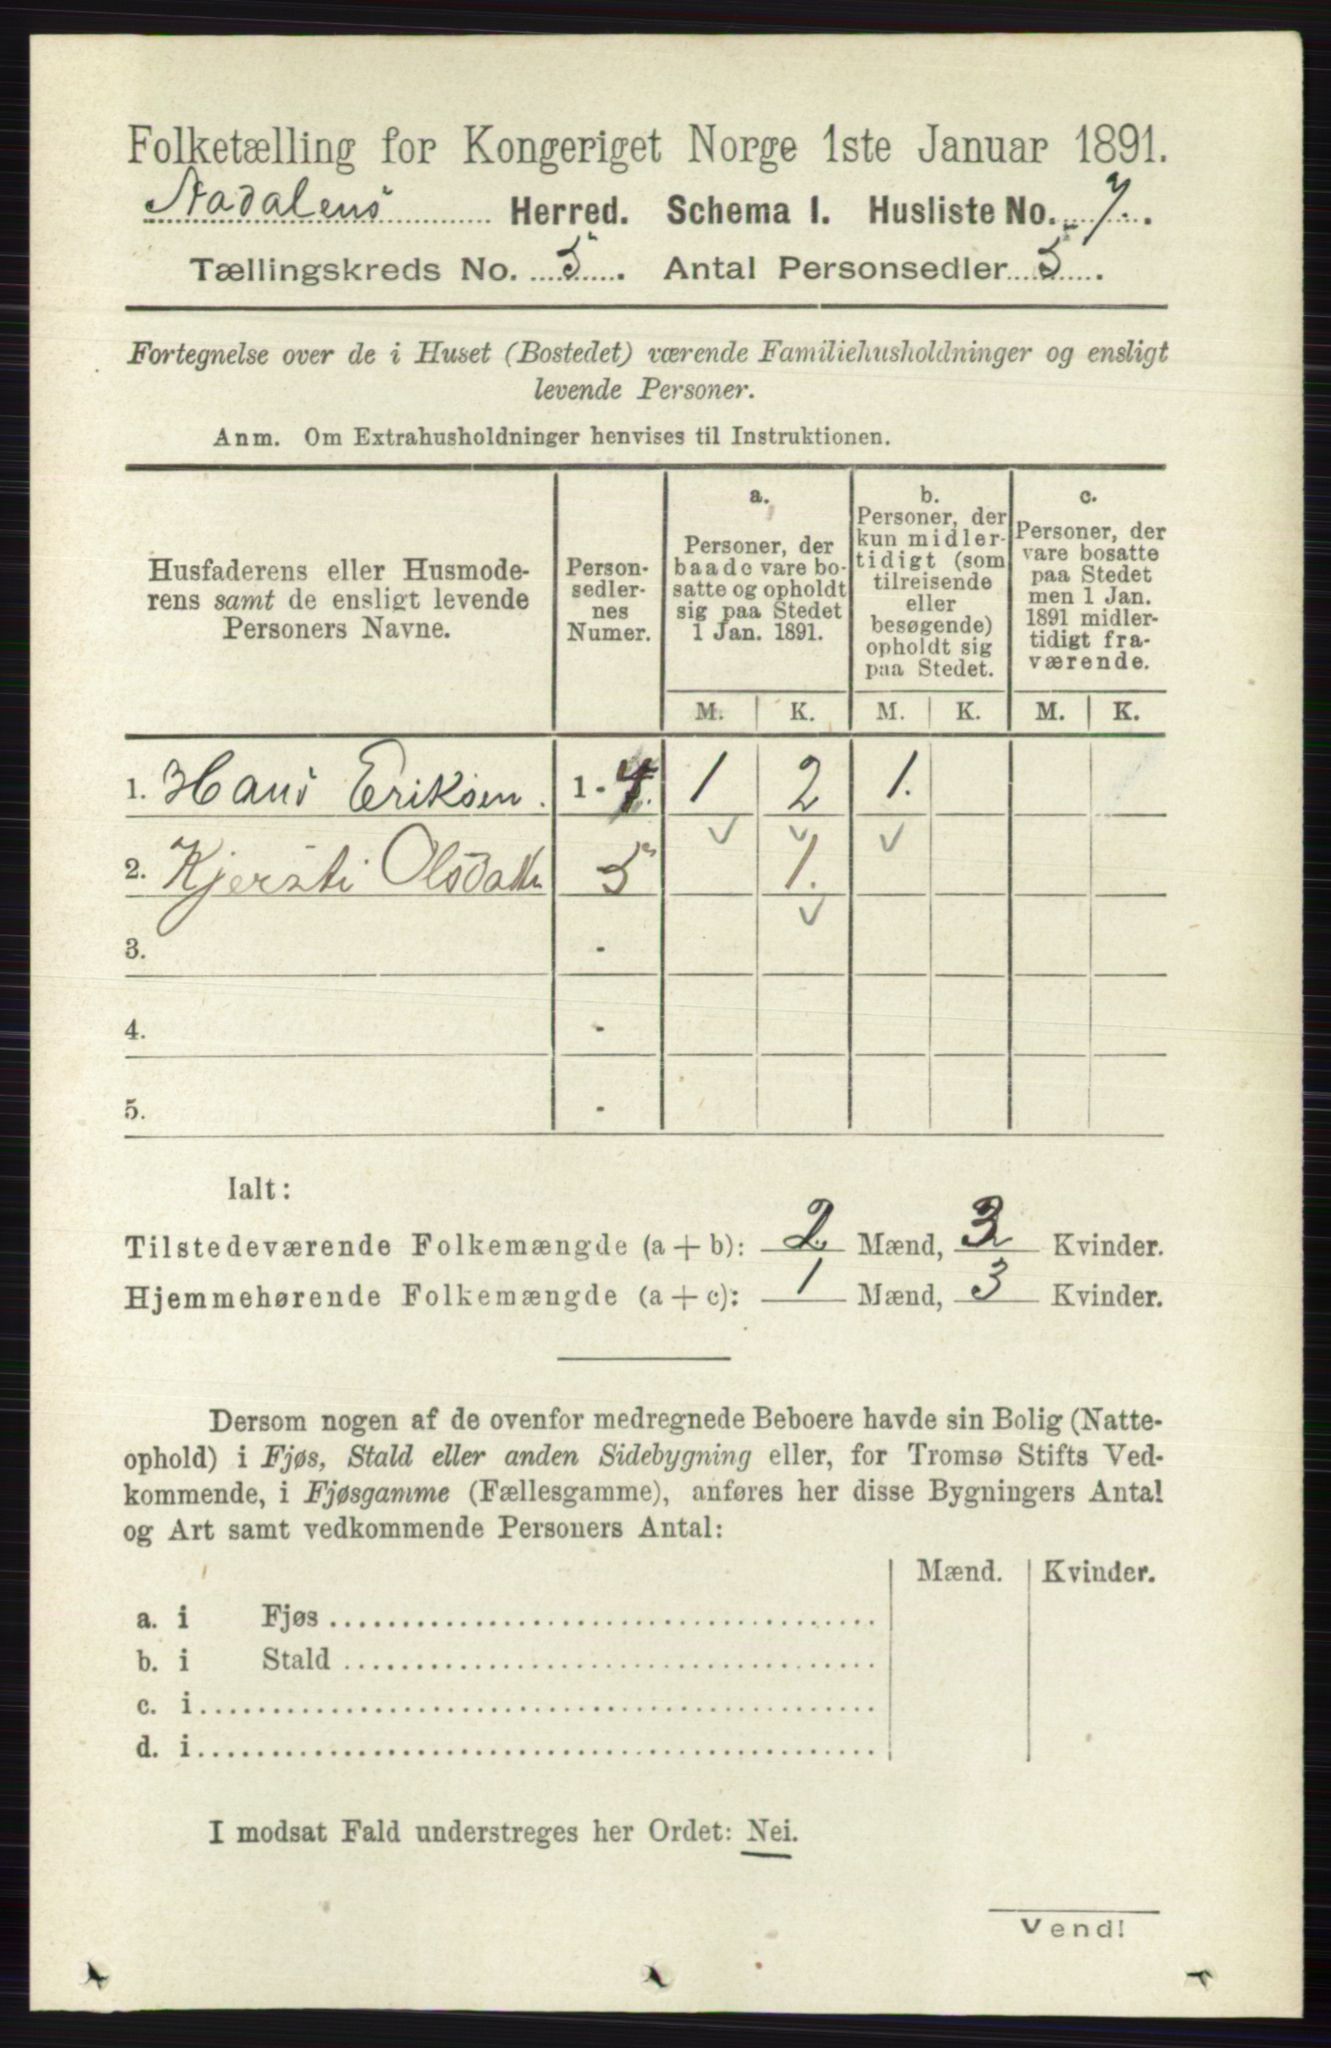 Folketælling for Kongeriget Norge 1ste Januar 1891.
Aadalens Herred. Schema I. Husliste No. 7.
Tællingskreds No. 5. Antal Personsedler 5.
Fortegnelse over de i Huset (Bostedet) værende Familiehusholdninger og ensligt
levende Personer.
Anm. Om Extrahusholdninger henvises til Instruktionen.
Husfaderens eller Husmode-
rens samt de ensligt levende
Personers Navne.
Person-
sedler-
nes
Numer.
a.
Personer, der
baade vare bo-
satte og opholdt
sig paa Stedet
1 Jan. 1891.
b.
Personer, der
kun midler-
tidigt (som
tilreisende
eller
besøgende)
opholdt sig
paa Stedet.
c.
Personer, der
vare bosatte
paa Stedet
men 1 Jan.
1891 midler-
tidigt fra-
værende.
M. K. M. K. M. K.
1. Hans Eriksen. 1 - 4. 1 2 1.
2. Kjersti Olsdatter 5 1.
3. -
4. -
5. -
Ialt:
Tilstedeværende Folkemængde (a + b): 2 Mænd, 3 Kvinder.
Hjemmehørende Folkemængde (a + c): 1 Mænd, 3 Kvinder.
Dersom nogen af de ovenfor medregnede Beboere havde sin Bolig (Natte-
ophold) i Fjøs, Stald eller anden Sidebygning eller, for Tromsø Stifts Ved-
kommende, i Fjøsgamme (Fællesgamme), anføres her disse Bygningers Antal
og Art samt vedkommende Personers Antal:
Mænd. Kvinder.
a. i Fjøs
b. i Stald
c. i
d. i
I modsat Fald understreges her Ordet: Nei.
Vend!